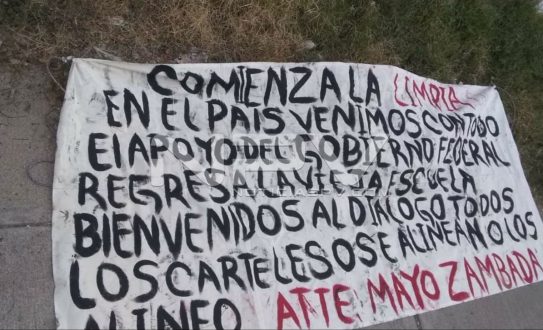 COMIENZA LA LIMPIA
EN EL PAIS VENIMOS CON TODO
El APOYO DEL GOBIERNO FEDERAL
REGRESA LA VIEJA ESCUELA
BIENVENIDOS AL DIALOGO TODOS
LOS CARTELES O SE ALINEAN O LOS
ALINEO ATTE MAYO ZAMBADA